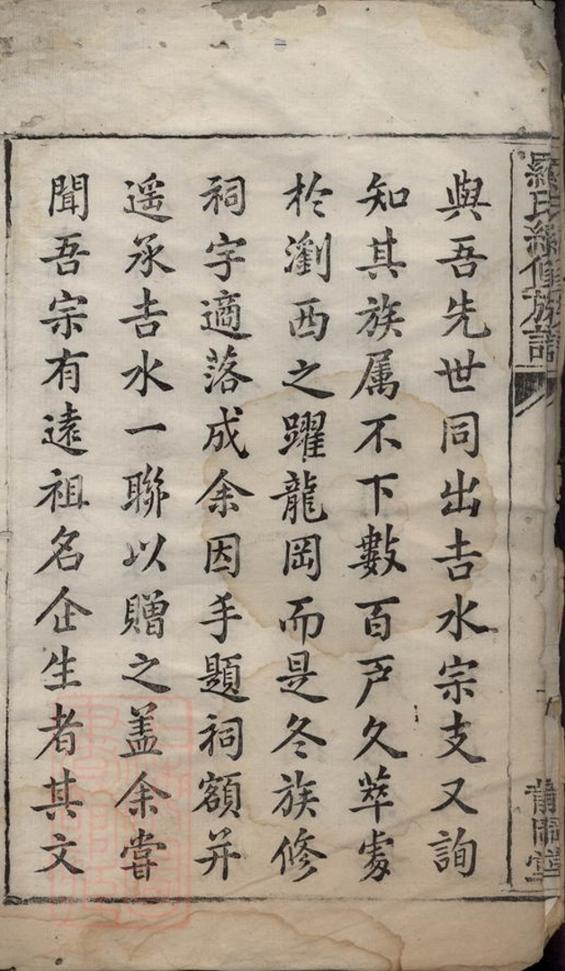 羅氏續修族譜
與吾先世同出吉水宗支又詢
知其族属不下數百戸久萃䖏
於瀏西之躍龍岡而是冬族修
祠宇適落成余因手題祠額并
遥承吉水一聯以贈之盖余嘗
聞吾宗有遠祖名企生者其文